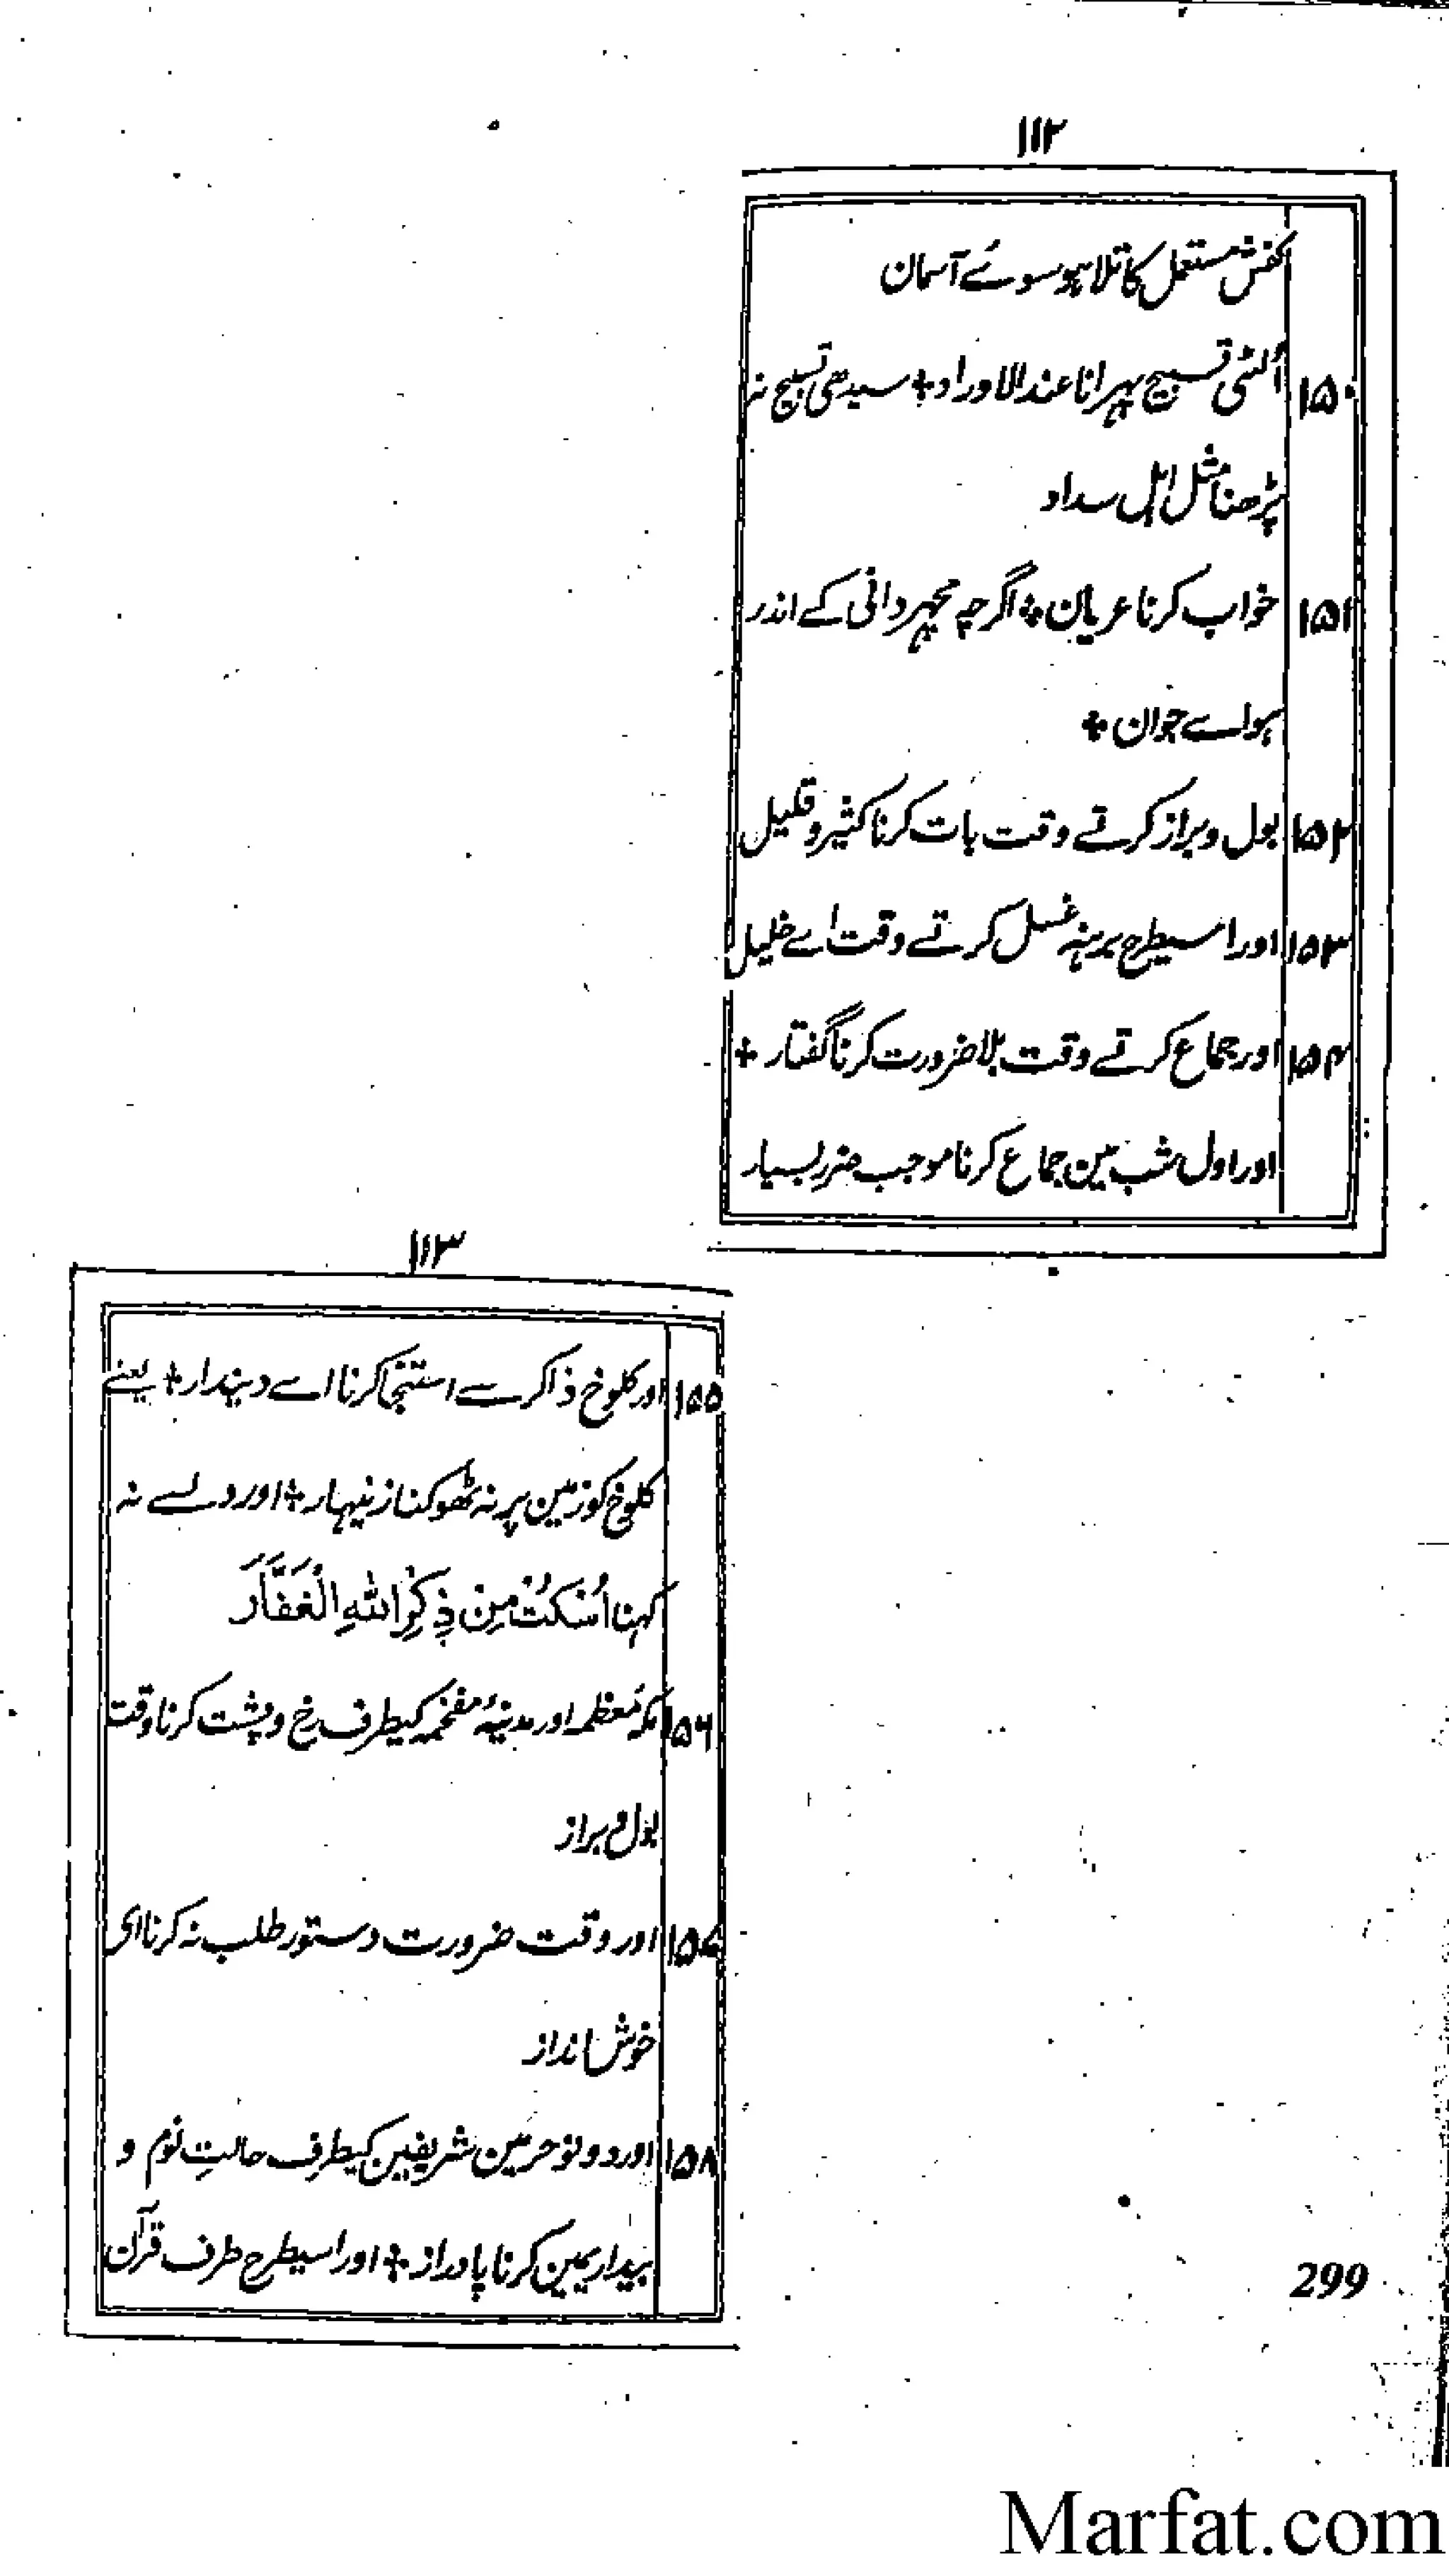 ۱۱۲
کفش مستعمل کا تلا ہو سوئے آسمان
۱۵۰ اُلٹی تسبیح پہرانا عند الاوراد + سیدھی تسبیح نہ
پڑھنا مثل اہل سداد
۱۵۱ خواب کرنا عریان + اگرچہ مچھردانی کے اندر
ہو اے جوان +
۱۵۲ بول و براز کرتے وقت بات کرنا کثیر و قلیل
۱۵۳ اور اسیطرح برہنہ غسل کرتے وقت اے خلیل
۱۵۴ اور جماع کرتے وقت بلا ضرورت کرنا گفتار +
اور اول شب مین جماع کرنا موجب ضرر بسیار
۱۱۳
۱۵۵ اور کلوخ ذاکر سے استنجا کرنا اے دیندار + یعنے
کلوخ کو زمین پر نہ ٹھوکنا زنیہار + اور دلسے نہ
کہنا اُسْكُتْ مِنْ ذِكْرِ اللهِ الْغَفَّارَ
۱۵۶ مکہ معظمہ اور مدینہ مفخمہ کیطرف رخ و پشت کرنا وقت
بول و براز
۱۵۷ اور وقت ضرورت دستور طلب نہ کرنا ای
خوش انداز
۱۵۸ اور دونو حرمین شریفین کیطرف حالتِ نوم و
بیداریمین کرنا پا دراز + اور اسیطرح طرف قرآن
299
Marfat.com